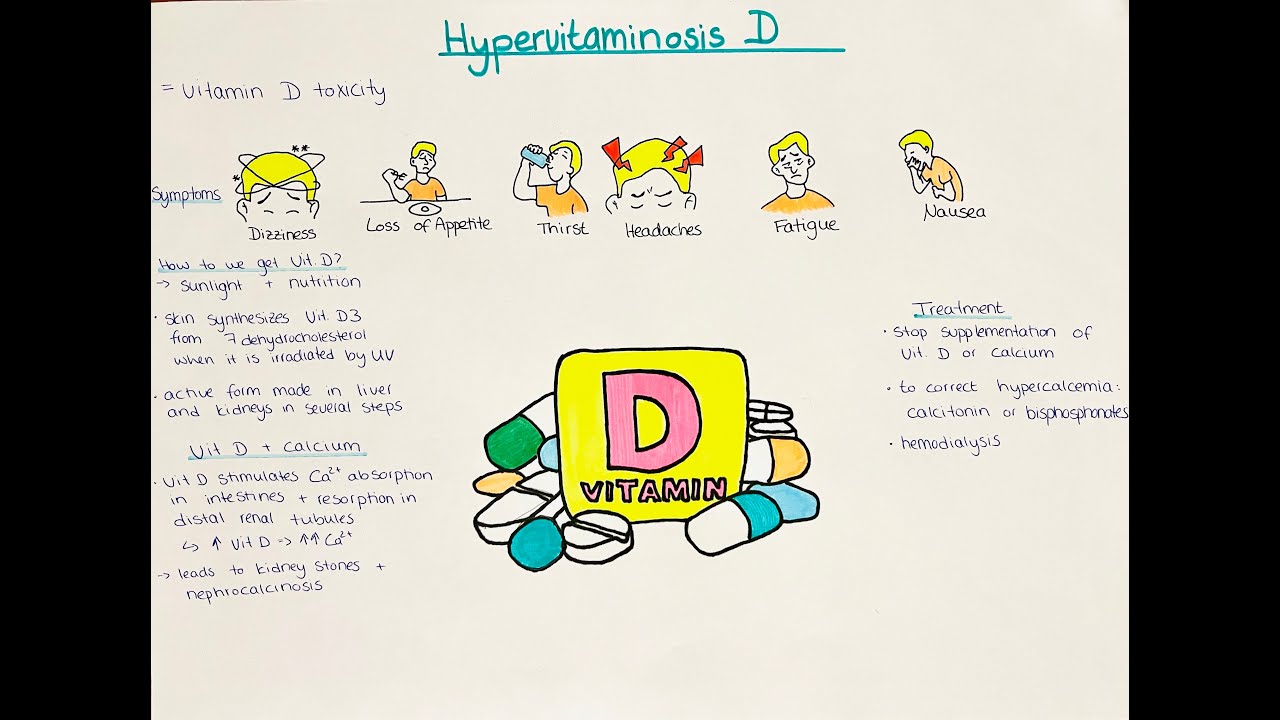 Hypervitaminosis D
= Vitamin D toxicity
Symptoms
Dizziness
Loss of Appetite
Thirst
Headaches
Fatigue
Nausea
How to we get Vit. D?
→ sunlight + nutrition
· skin synthesizes Vit. D3
from 7 dehydrocholesterol
when it is irradiated by UV
· active form made in liver
and kidneys in several steps
Vit D + calcium
· Vit D stimulates Ca²⁺ absorption
in intestines + resorption in
distal renal tubules
↳ ↑ Vit D => ↑↑ Ca²⁺
→ leads to kidney stones +
nephrocalcinosis
D
VITAMIN
Treatment
· stop supplementation of
Vit. D or calcium
· to correct hypercalcemia:
calcitonin or bisphosphonates
· hemodialysis